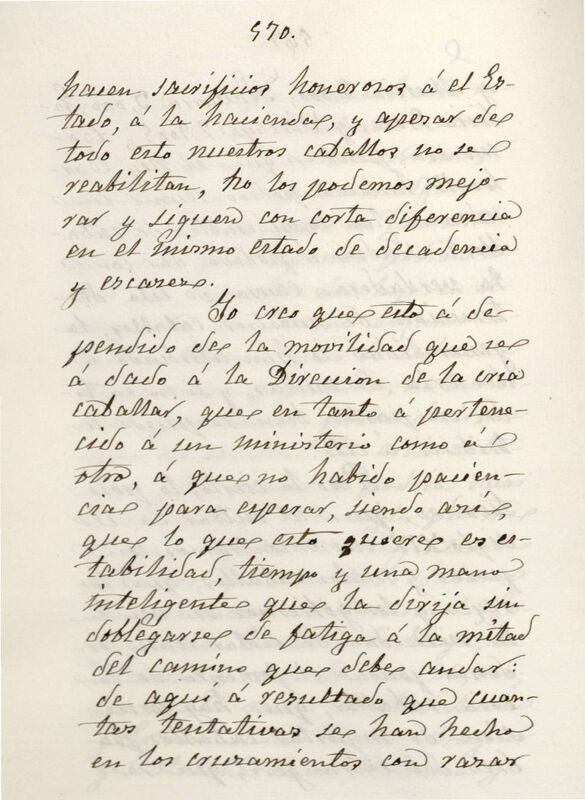 570.
hacen sacrificios honerosos á el Es-
tado, á la hacienda, y apesar de
todo esto nuestros caballos no se
reabilitan, no los podemos mejo-
rar y siguen con corta diferencia
en el mismo estado de decadencia
y escases.
Yo creo que esto á de-
pendido de la movilidad que se
á dado á la Direccion de la cria
caballar, que en tanto á pertene-
cido á un ministerio como á
otro, á que no habido pacien-
cia para esperar, siendo asi,
que lo que esto quiere es es-
tabilidad, tiempo y una mano
inteligente que la dirija sin
doblegarse de fatiga á la mitad
del camino que debe andar:
de aqui á resultado que cuan-
tas tentativas se han hecho
en los cruzamientos con razas